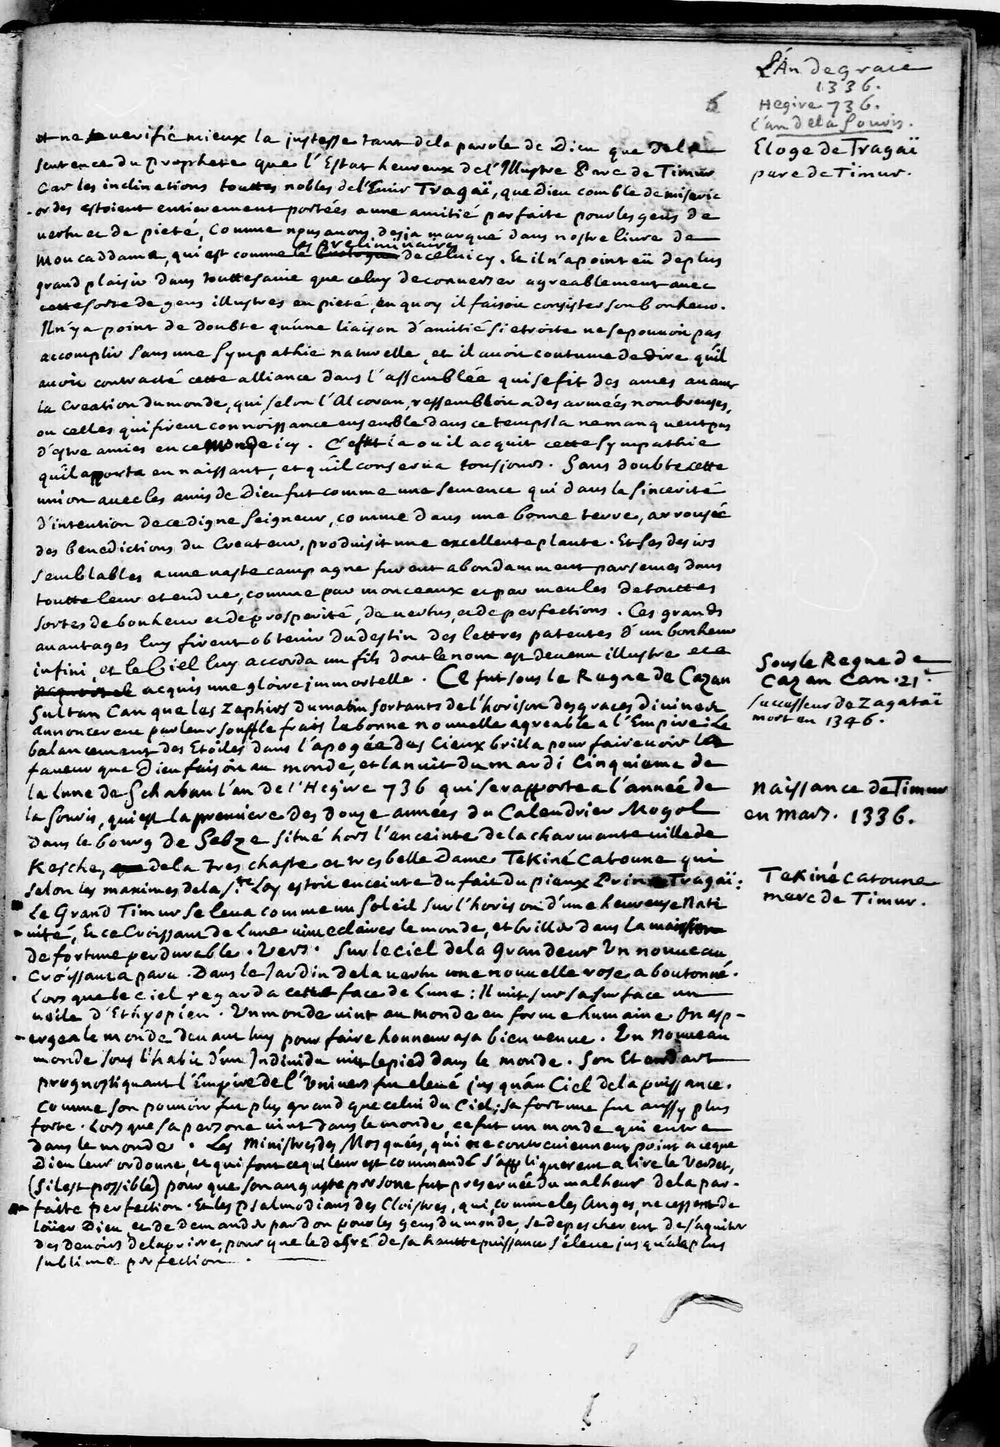 L'An de grace
1336.
Hegire 736.
l'an de la Souris.
6
Eloge de Tragaï
pere de Timur.
et ne verifie mieux la justesse tant de la parole de Dieu que de la
sentence du prophete que l'Estat heureux de l'Illustre Pere de Timur
Car les inclinations touttes nobles de l'Emir Tragaï, que Dieu comble de miseric
-ordes estoient entierement portées a une amitié parfaite pour les gens de
vertu et de pieté, Comme nous avons desja marqué dans nostre livre de
Moucaddame, qui est comme les preliminaires de celuicy. Et il n'a point eü de plus
grand plaisir dans toutte sa vie que celuy de converser agreablement avec
cette sorte de gens illustres en pieté, en quoy il faisoit consister son bonheur.
Il n'y a point de doubte qu'une liaison d'amitié si etroite ne se pouvoit pas
accomplir sans une sympathie naturelle, et il avoit coutume de dire qu'il
avoit contracté cette alliance dans l'assemblée qui se fit des ames avant
la Creation du monde, qui selon l'Alcoran, ressembloit a des armées nombreuses,
ou celles qui firent connoissance ensemble dans ce temps la ne manquent pas
d'estre amies en ce monde icy. C'est la ou il acquit cette sympathie
qu'il apporta en naissant, et qu'il conserva tousjours. Sans doubte cette
union avec les amis de Dieu fut comme une semence qui dans la sincerité
d'intention de ce digne Seigneur, comme dans une bonne terre, arrousée
des benedictions du Createur, produisit une excellente plante. Et ses desirs
semblables a une vaste campagne furent abondamment parsemés dans
toutte leur etendue, comme par monceaux et par meules de touttes
sortes de bonheur et de prosperité, de vertus, et de perfections. Ces grands
avantages luy firent obtenir du destin des lettres patentes d'un bonheur
infini, et le Ciel luy accorda un fils dont le nom est devenu illustre et a
acquis une gloire immortelle. Ce fut sous le Regne de Cazan
Sultan Can que les Zephirs du matin sortants de l'horison des graces divines
annoncerent par leur souffle frais la bonne nouvelle agreable a l'Empire: Le
balancement des Etoiles dans l'apogée des Cieux brilla pour faire voir la
faveur que Dieu faisoit au monde, et la nuit du mardi Cinquieme de
la lune de Schaban l'an de l'Hegire 736 qui se rapporte a l'année de
la Souris, qui est la premiere des douze années du Calendrier Mogol
dans le bourg de Sebze situé hors l'enceinte de la charmante ville de
Kesche, de la tres chaste et tres belle Dame Tekiné Catoune qui
selon les maximes de la Ste Loy estoit enceinte du fait du pieux Prince Tragaï:
Le Grand Timur se leva comme un soleil sur l'horison d'une heureuse Nati
-vité, Et ce Croissant de Lune vint eclairer le monde, et briller dans la maison
de fortune perdurable. Vers. Sur le ciel de la Grandeur Un nouveau
Croissant a paru. Dans le Jardin de la vertu une nouvelle rose a boutonné.
Lors que le ciel regarda cette face de Lune: Il mit sur sa surface un
voile d'Ethyopien. Un monde vint au monde en forme humaine On asp-
-ergea le monde devant luy pour faire honneur a sa bienvenue. Un Nouveau
monde sous l'habit d'un Individu mit le pied dans le monde. Son Etendart
prognostiquant l'Empire de l'Univers fut elevé jusqu'au Ciel de la puissance.
Comme son pouvoir fut plus grand que celui du Ciel; sa fortune fut aussy plus
forte. Lors que sa persone vint dans le monde, ce fut un monde qui entra
dans le monde. Les Ministres des Mosquées, qui ne contreviennent point a ce que
Dieu leur ordonne, et qui font ce qui leur est commandé s'appliquerent a lire le Verset,
(S'il est possible) pour que son auguste persone fut preservée du malheur de la par-
-faitte perfection. Et les psalmodians des Cloistres, qui, comme les Anges, ne cessent de
loüer Dieu et de demander pardon pour les gens du monde, se depescherent de s'aquiter
des devoirs de la priere, pour que le degré de sa hautte puissance s'eleva jusqu'a la plus
sublime perfection.
Sous le Regne de
Cazan Can. 21.
successeur de Zagataï
mort en 1346.
Naissance de Timur
en Mars. 1336.
Tekiné Catoune
mere de Timur.